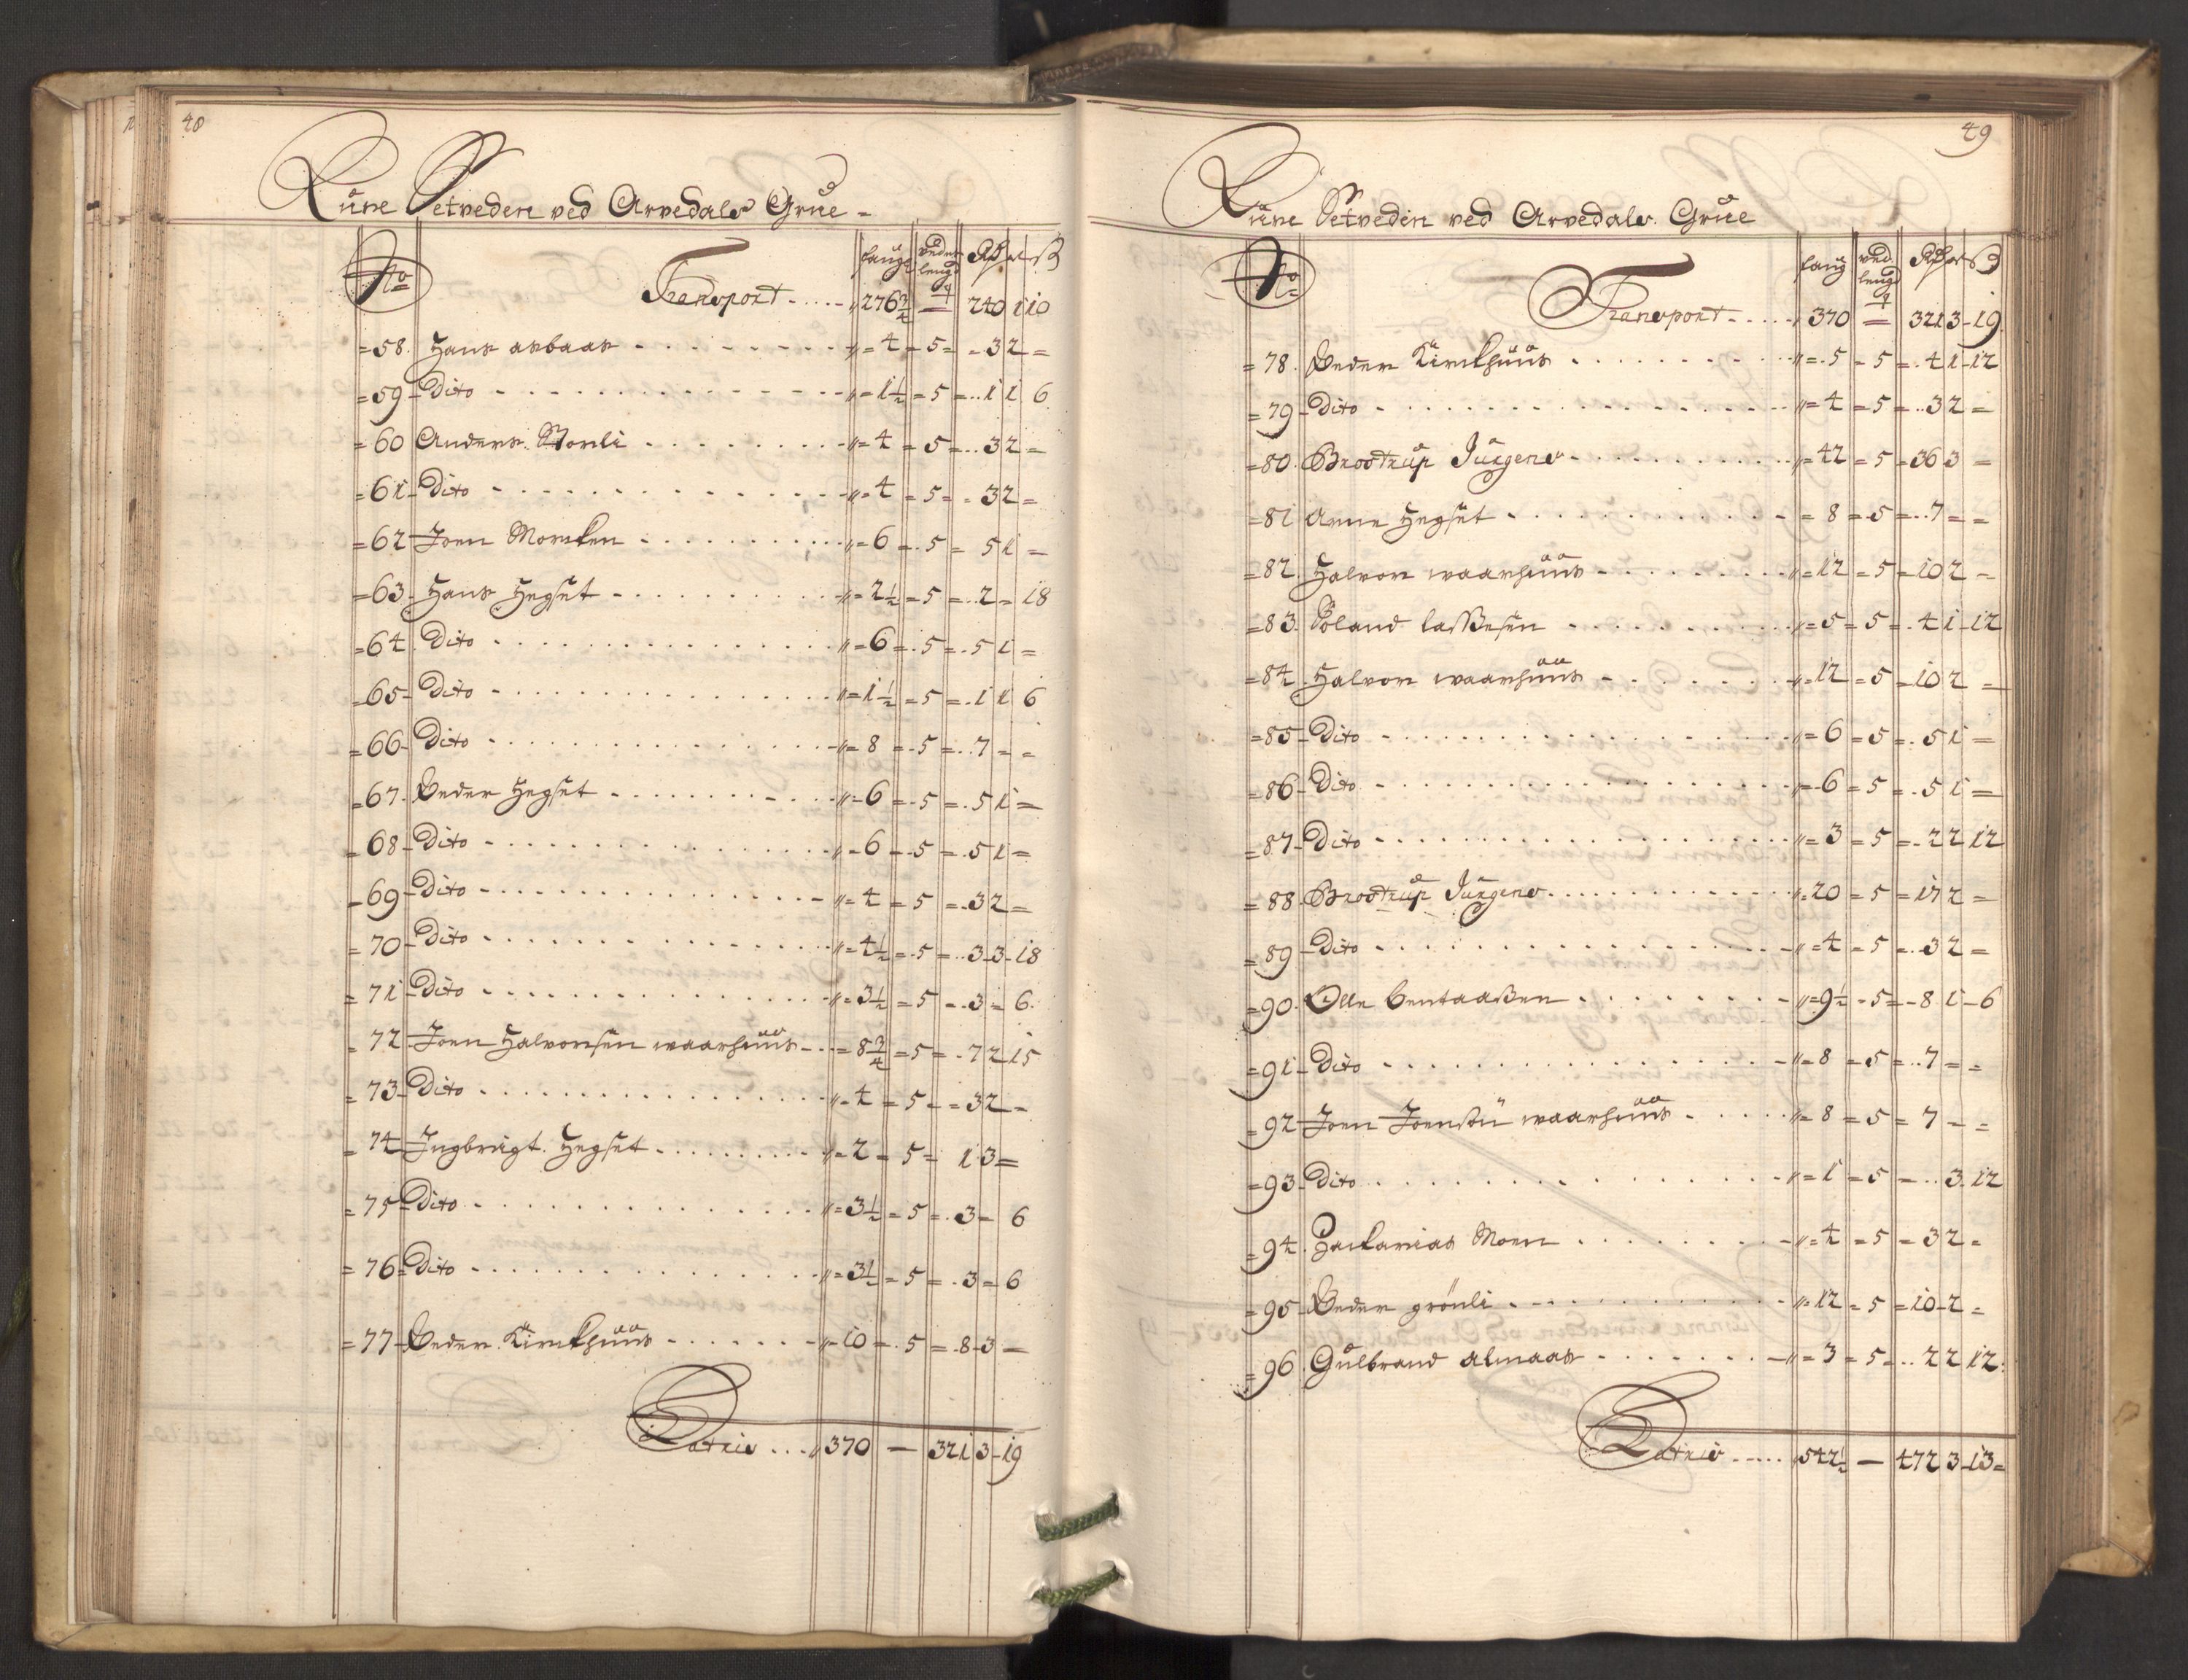 48
Rüne Setveden ved Arvedals Grüe
No faũg vedens lengd Rdr ort ß
Transport 276 3/4 — 240 1 10
58. Hans asbaas 4 5 3 2 =
59 Dito 1 1/2 5 1 1 6
60 Anders Storli 4 5 3 2 =
61 Dito 4 5 3 2 =
62 Joen Morcken 6 5 5 1 =
63 Hans Hegset 2 1/2 5 2 = 18
64 Dito 6 5 5 1 =
65 Dito 1 1/2 5 1 1 6
66 Dito 8 5 7 = =
67 Peder Hegset 6 5 5 1 =
68 Dito 6 5 5 1 =
69 Dito 4 5 3 2 =
70 Dito 4 1/2 5 3 3 18
71 Dito 3 1/2 5 3 = 6
72 Joen Halvorsen waarhüüs 8 3/4 5 7 2 15
73 Dito 4 5 3 2 =
74 Ingbrigt Hegset 2 5 1 3 =
75 Dito 3 1/2 5 3 = 6
76 Dito 3 1/2 5 3 = 6
77 Peder Kirckhüüs 10 5 8 3 =
Latris 370 — 321 3 19
49
Rüne Setveden ved Arvedals Grüe
No faug ved lengd Rdr ort ß
Transport 370 — 321 3 19
78. Peder Kirckhüüs 5 5 4 1 12
79 Dito 4 5 3 2 =
80. Brostrüp Jürgens 42 5 36 3 =
81 Arne Hegset 8 5 7 = =
82. Halvor waarhüüs 12 5 10 2 =
83. Roland Lasßesen 5 5 4 1 12
84 Halvor waarhüüs 12 5 10 2 =
85 Dito 6 5 5 1 =
86 Dito 6 5 5 1 =
87 Dito 3 5 2 2 12
88 Brostrüp Jürgens 20 5 17 2 =
89 Dito 4 5 3 2 =
90. Olle bentaasßen 9 1/2 5 8 1 6
91 Dito 8 5 7 = =
92 Joen Joensøn waarhüüs 8 5 7 = =
93 Dito 1 5 3 12
94 Zackarias Moen 4 5 3 2 =
95 Peder grönli 12 5 10 2 =
96 Gülbrand almaas 3 5 2 2 12
Latris 542 1/2 — 472 3 13